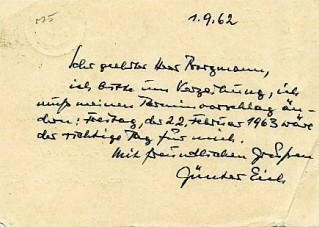 1.9.62
Sehr geehrter Herr Borgmann,
ich bitte um Verzeihung, ich
muß meinen Terminvorschlag än-
dern: Freitag, der 22. Februar 1963 wäre
der richtige Tag für mich.
Mit freundlichen Grüßen
Günter Eich